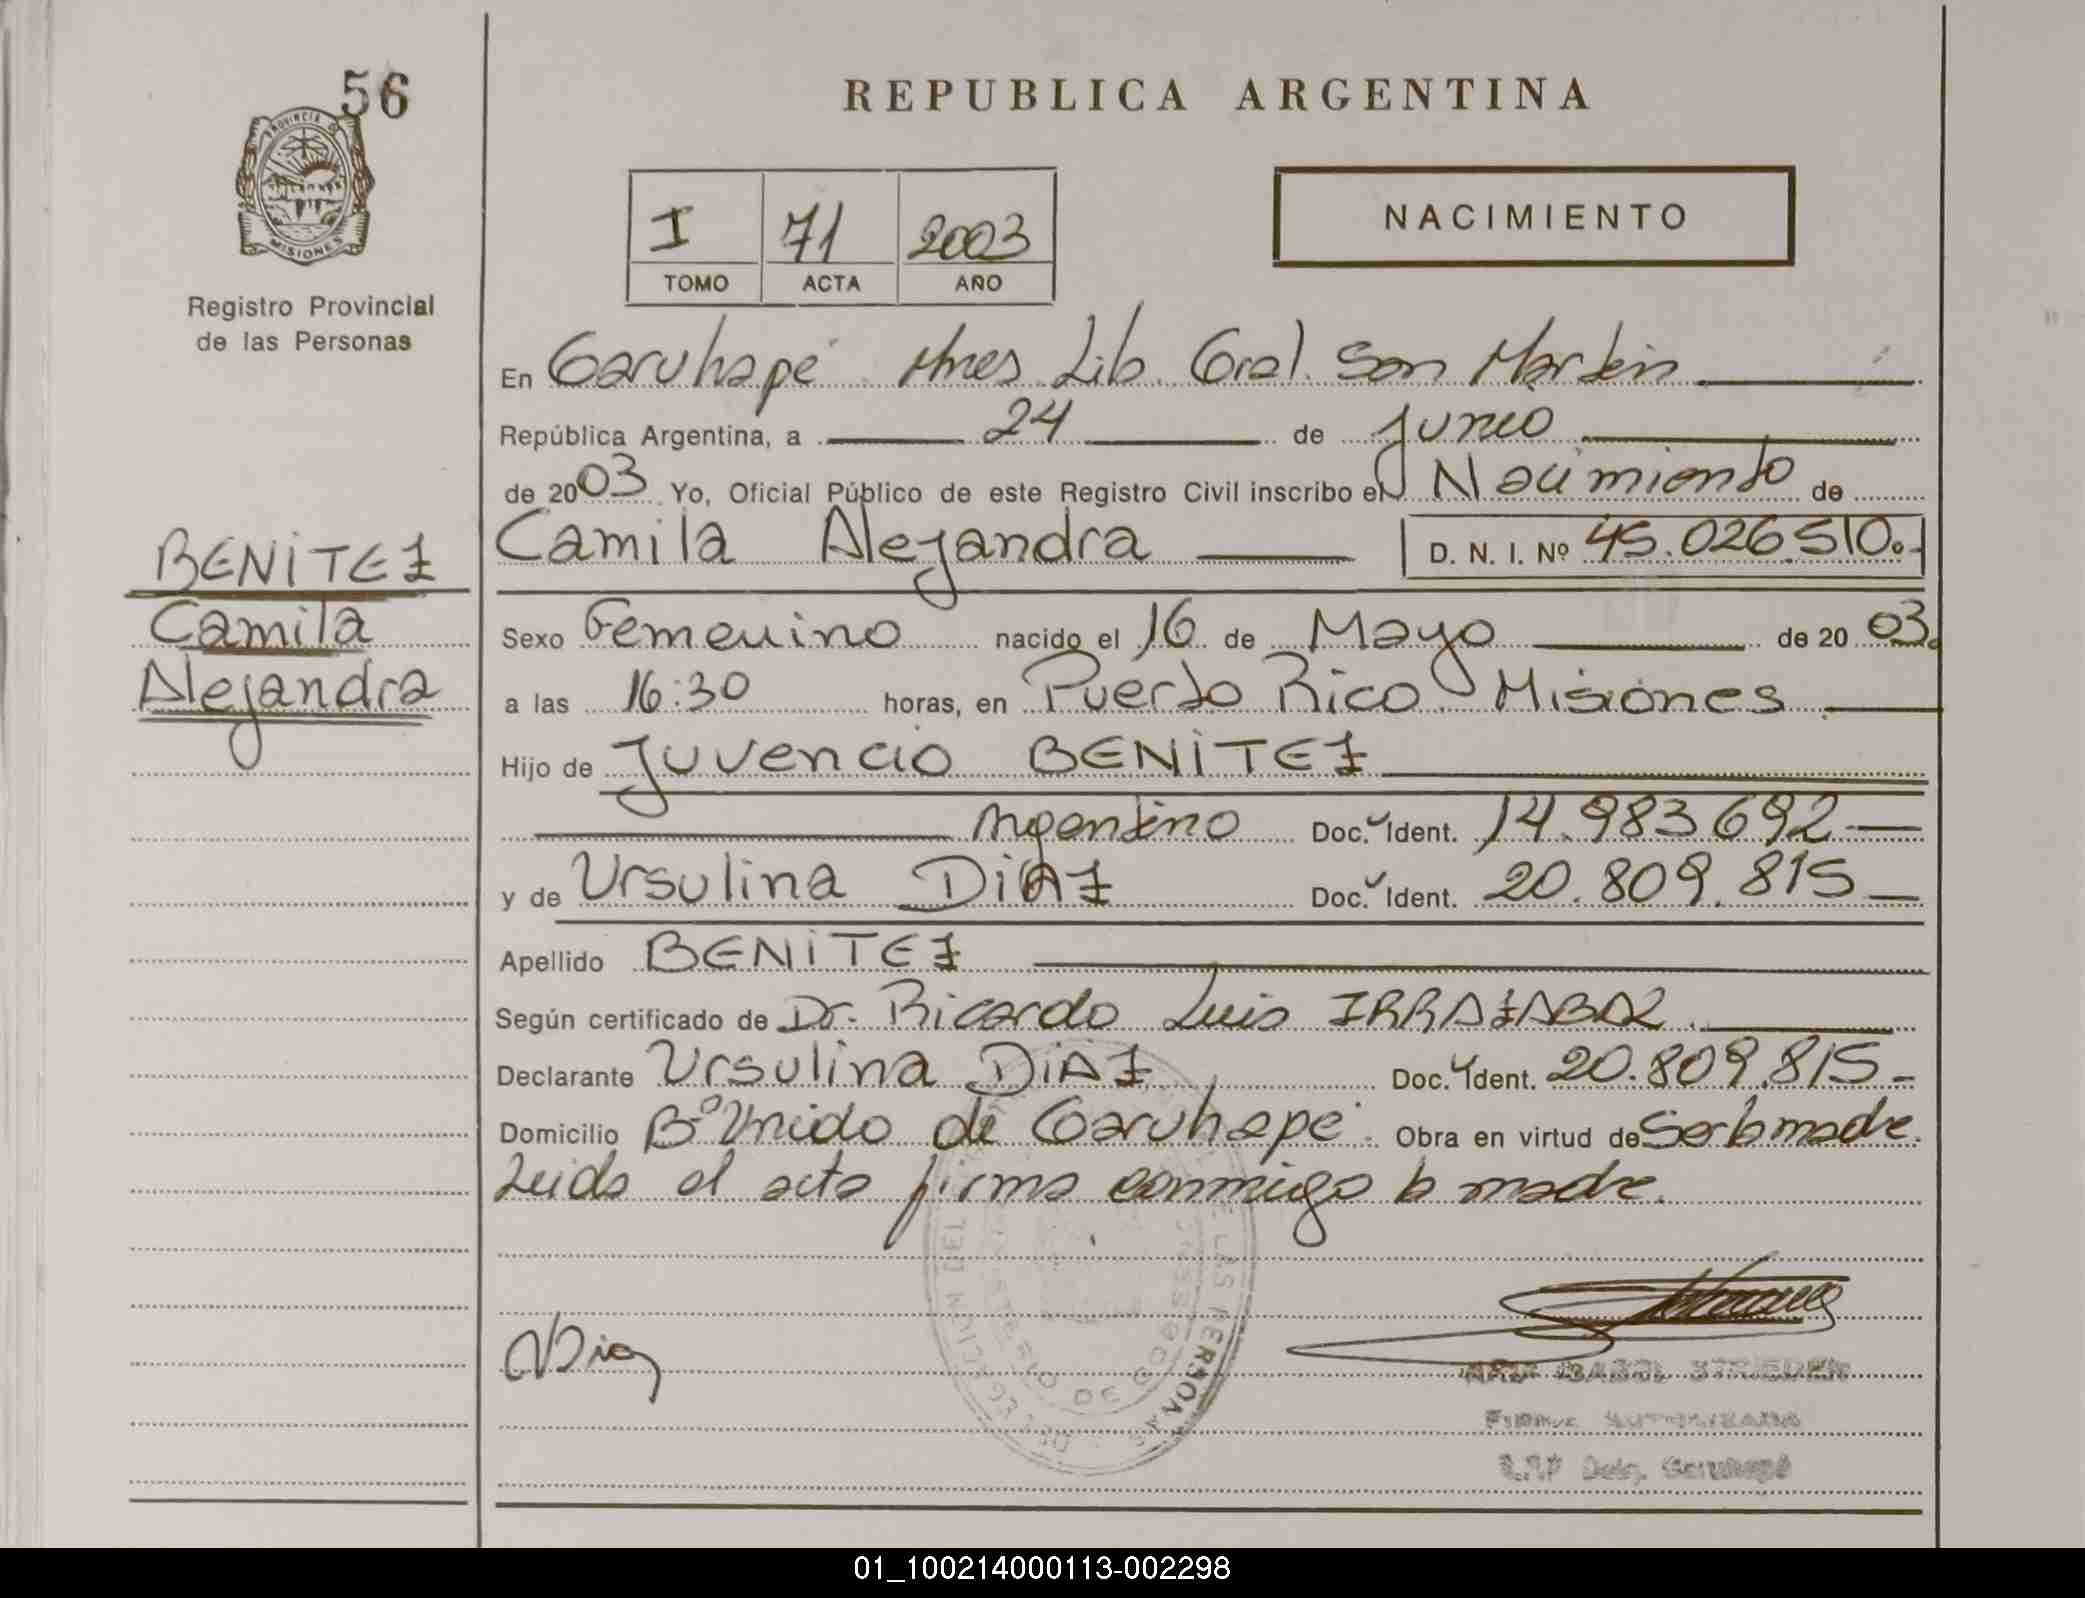 56
PROVINCIA DE
MISIONES
Registro Provincial
de las Personas
BENITEZ
Camila
Alejandra
REPUBLICA ARGENTINA
I 71 2003
TOMO ACTA AÑO
NACIMIENTO
En Garuhapé Mnes Lib. Gral. San Martin
República Argentina, a 24 de Junio
de 2003 Yo, Oficial Público de este Registro Civil inscribo el Nacimiento de
Camila Alejandra D. N. I. Nº 45.026.510.
Sexo Femenino nacido el 16 de Mayo de 20 03.
a las 16:30 horas, en Puerto Rico Misiones
Hijo de Juvencio BENITEZ
Argentino Doc. Ident. 14.983.692
y de Ursulina DiAZ Doc. Ident. 20.809.815
Apellido BENITEZ
Según certificado de Dr. Ricardo Luis IRRAZABAL
Declarante Ursulina DiAZ Doc. Ident. 20.809.815
Domicilio Bº Unido de Garuhapé. Obra en virtud de Ser la madre.
Leida el acta firma conmigo la madre.
REGISTRO PROVINCIAL DE LAS PERSONAS
MINISTERIO DE GOBIERNO
Diaz
STRIEDER
R.P.P Deleg. Garuhapé
01_100214000113-002298